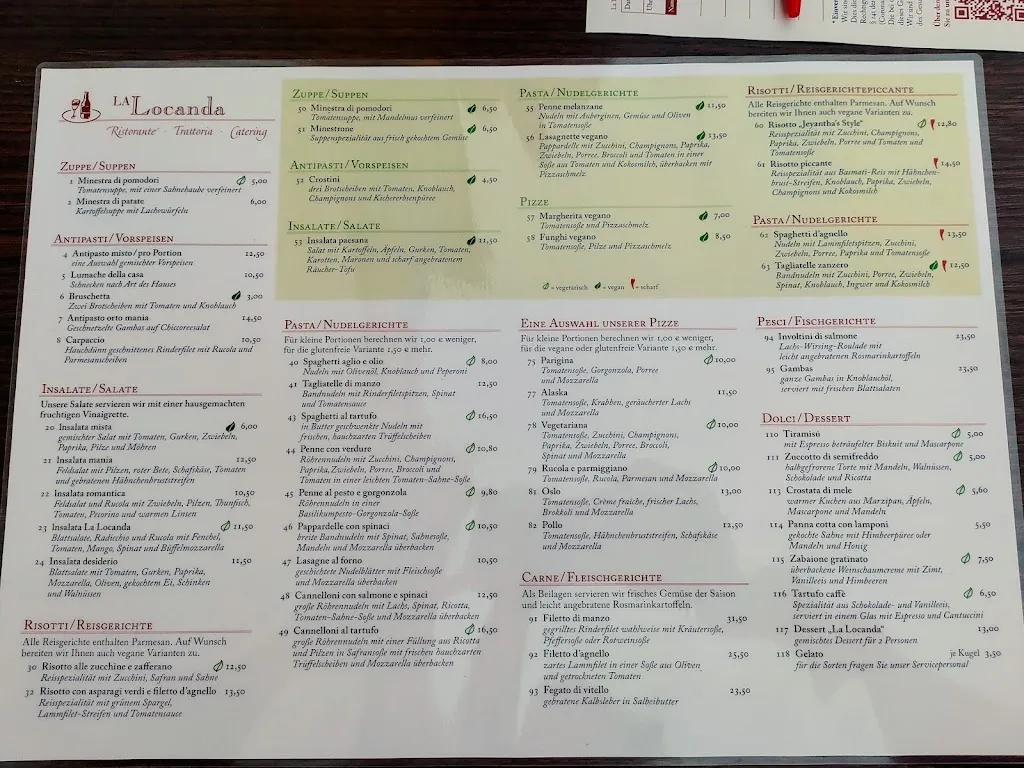 LA Locanda
Ristorante · Trattoria · Catering
ZUPPE/SUPPEN
1 Minestra di pomodori 5,00
Tomatensuppe, mit einer Sahnehaube verfeinert
2 Minestra di patate 6,00
Kartoffelsuppe mit Lachswürfeln
ANTIPASTI/VORSPEISEN
4 Antipasto misto/pro Portion 12,50
eine Auswahl gemischter Vorspeisen
5 Lumache della casa 10,50
Schnecken nach Art des Hauses
6 Bruschetta 3,00
Zwei Brotscheiben mit Tomaten und Knoblauch
7 Antipasto orto mania 14,50
Geschnetzelte Gambas auf Chiccoreesalat
8 Carpaccio 10,50
Hauchdünn geschnittenes Rinderfilet mit Rucola und
Parmesanscheiben
INSALATE/SALATE
Unsere Salate servieren wir mit einer hausgemachten
fruchtigen Vinaigrette.
20 Insalata mista 6,00
gemischter Salat mit Tomaten, Gurken, Zwiebeln,
Paprika, Pilze und Möhren
21 Insalata mania 12,50
Feldsalat mit Pilzen, roter Bete, Schafskäse, Tomaten
und gebratenen Hähnchenbruststreifen
22 Insalata romantica 10,50
Feldsalat und Rucola mit Zwiebeln, Pilzen, Thunfisch,
Tomaten, Pecorino und warmen Linsen
23 Insalata La Locanda 11,50
Blattsalate, Radicchio und Rucola mit Fenchel,
Tomaten, Mango, Spinat und Büffelmozzarella
24 Insalata desiderio 11,50
Blattsalate mit Tomaten, Gurken, Paprika,
Mozzarella, Oliven, gekochtem Ei, Schinken
und Walnüssen
RISOTTI/REISGERICHTE
Alle Reisgerichte enthalten Parmesan. Auf Wunsch
bereiten wir Ihnen auch vegane Varianten zu.
30 Risotto alle zucchine e zafferano 12,50
Reisspezialität mit Zucchini, Safran und Sahne
32 Risotto con asparagi verdi e filetto d'agnello 13,50
Reisspezialität mit grünem Spargel,
Lammfilet-Streifen und Tomatensauce
ZUPPE/SUPPEN
50 Minestra di pomodori 6,50
Tomatensuppe, mit Mandelmus verfeinert
51 Minestrone 6,50
Suppenspezialität aus frisch gekochtem Gemüse
ANTIPASTI/VORSPEISEN
52 Crostini 4,50
drei Brotscheiben mit Tomaten, Knoblauch,
Champignons und Kichererbsenpüree
INSALATE/SALATE
53 Insalata paesana 11,50
Salat mit Kartoffeln, Äpfeln, Gurken, Tomaten,
Karotten, Maronen und scharf angebratenem
Räucher-Tofu
PASTA/NUDELGERICHTE
55 Penne melanzane 11,50
Nudeln mit Auberginen, Gemüse und Oliven
in Tomatensoße
56 Lasagnette vegano 13,50
Pappardelle mit Zucchini, Champignons, Paprika,
Zwiebeln, Porree, Broccoli und Tomaten in einer
Soße aus Tomaten und Kokosmilch, überbacken mit
Pizzaschmelz
PIZZE
57 Margherita vegano 7,00
Tomatensoße und Pizzaschmelz
58 Funghi vegano 8,50
Tomatensoße, Pilze und Pizzaschmelz
= vegetarisch = vegan = scharf
RISOTTI/REISGERICHTEPICCANTE
Alle Reisgerichte enthalten Parmesan. Auf Wunsch
bereiten wir Ihnen auch vegane Varianten zu.
60 Risotto „Jeyantha's Style“ 12,80
Reisspezialität mit Zucchini, Champignons,
Paprika, Zwiebeln, Porree und Tomaten und
Tomatensoße
61 Risotto piccante 14,50
Reisspezialität aus Basmati-Reis mit Hähnchen-
brust-Streifen, Knoblauch, Paprika, Zwiebeln,
Champignons und Kokosmilch
PASTA/NUDELGERICHTE
62 Spaghetti d'agnello 13,50
Nudeln mit Lammfiletspitzen, Zucchini,
Zwiebeln, Porree, Paprika und Tomatensoße
63 Tagliatelle zanzero 12,50
Bandnudeln mit Zucchini, Porree, Zwiebeln,
Spinat, Knoblauch, Ingwer und Kokosmilch
PASTA/NUDELGERICHTE
Für kleine Portionen berechnen wir 1,00 € weniger,
für die glutenfreie Variante 1,50 € mehr.
40 Spaghetti aglio e olio 8,00
Nudeln mit Olivenöl, Knoblauch und Peperoni
41 Tagliatelle di manzo 12,50
Bandnudeln mit Rinderfiletspitzen, Spinat
und Tomatensauce
43 Spaghetti al tartufo 16,50
in Butter geschwenkte Nudeln mit
frischen, hauchzarten Trüffelscheiben
44 Penne con verdure 10,80
Röhrennudeln mit Zucchini, Champignons,
Paprika, Zwiebeln, Porree, Broccoli und
Tomaten in einer leichten Tomaten-Sahne-Soße
45 Penne al pesto e gorgonzola 9,80
Röhrennudeln in einer
Basilikumpesto-Gorgonzola-Soße
46 Pappardelle con spinaci 10,50
breite Bandnudeln mit Spinat, Sahnesoße,
Mandeln und Mozzarella überbacken
47 Lasagne al forno 10,50
geschichtete Nudelblätter mit Fleischsoße
und Mozzarella überbacken
48 Cannelloni con salmone e spinaci 12,50
große Röhrennudeln mit Lachs, Spinat, Ricotta,
Tomaten-Sahne-Soße und Mozzarella überbacken
49 Cannelloni al tartufo 16,50
große Röhrennudeln mit einer Füllung aus Ricotta
und Pilzen in Safransoße mit frischen hauchzarten
Trüffelscheiben und Mozzarella überbacken
EINE AUSWAHL UNSERER PIZZE
Für kleine Portionen berechnen wir 1,00 € weniger,
für die vegane oder glutenfreie Variante 1,50 € mehr.
75 Parigina 10,00
Tomatensoße, Gorgonzola, Porree
und Mozzarella
77 Alaska 11,50
Tomatensoße, Krabben, geräucherter Lachs
und Mozzarella
78 Vegetariana 10,00
Tomatensoße, Zucchini, Champignons,
Paprika, Zwiebeln, Porree, Broccoli,
Spinat und Mozzarella
79 Rucola e parmiggiano 10,00
Tomatensoße, Rucola, Parmesan und Mozzarella
81 Oslo 13,00
Tomatensoße, Crème fraîche, frischer Lachs,
Brokkoli und Mozzarella
82 Pollo 12,50
Tomatensoße, Hähnchenbruststreifen, Schafskäse
und Mozzarella
CARNE/FLEISCHGERICHTE
Als Beilagen servieren wir frisches Gemüse der Saison
und leicht angebratene Rosmarinkartoffeln.
91 Filetto di manzo 31,50
gegrilltes Rinderfilet wahlweise mit Kräutersoße,
Pfeffersoße oder Rotweinsoße
92 Filetto d'agnello 25,50
zartes Lammfilet in einer Soße aus Oliven
und getrockneten Tomaten
93 Fegato di vitello 23,50
gebratene Kalbsleber in Salbeibutter
PESCI/FISCHGERICHTE
94 Involtini di salmone 23,50
Lachs-Wirsing-Roulade mit
leicht angebratenen Rosmarinkartoffeln
95 Gambas 23,50
ganze Gambas in Knoblauchöl,
serviert mit frischen Blattsalaten
DOLCI/DESSERT
110 Tiramisù 5,00
mit Espresso beträufelter Biskuit und Mascarpone
111 Zuccotto di semifreddo 5,00
halbgefrorene Torte mit Mandeln, Walnüssen,
Schokolade und Ricotta
113 Crostata di mele 5,60
warmer Kuchen aus Marzipan, Äpfeln,
Mascarpone und Mandeln
114 Panna cotta con lamponi 5,50
gekochte Sahne mit Himbeerpüree oder
Mandeln und Honig
115 Zabaione gratinato 7,50
überbackene Weinschaumcreme mit Zimt,
Vanilleeis und Himbeeren
116 Tartufo caffè 6,50
Spezialität aus Schokolade- und Vanilleeis,
serviert in einem Glas mit Espresso und Cantuccini
117 Dessert „La Locanda“ 13,00
gemischtes Dessert für 2 Personen
118 Gelato je Kugel 3,50
für die Sorten fragen Sie unser Servicepersonal